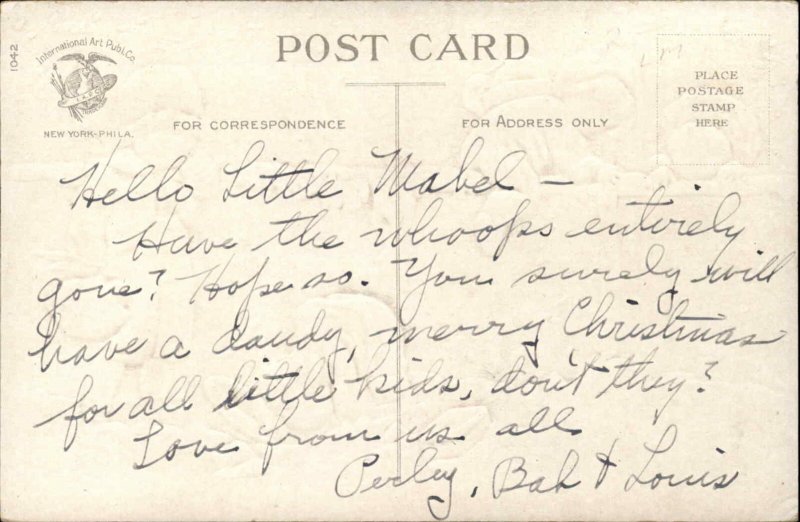 1042
International Art Publ. Co.
NEW YORK-PHILA.
POST CARD
FOR CORRESPONDENCE
FOR ADDRESS ONLY
PLACE
POSTAGE
STAMP
HERE
Hello Little Mabel –
Have the whoops entirely
gone? Hope so. You surely will
have a dandy, merry Christmas
for all little kids, don't they?
Love from us all
Perley, Bab & Louis